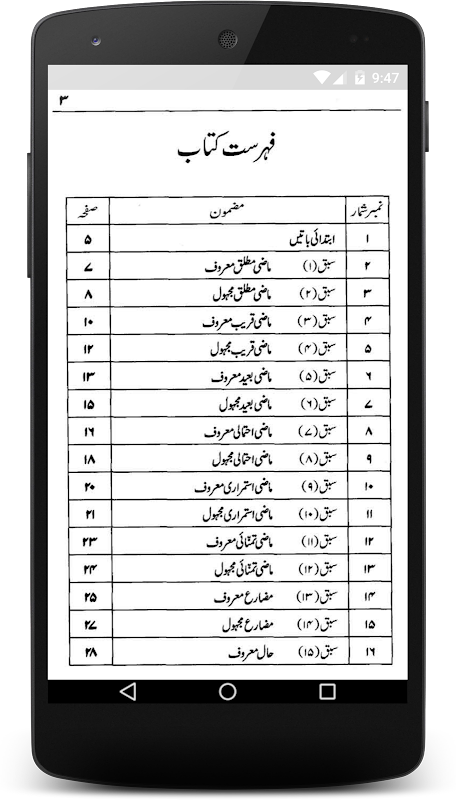 9:47
۳
فہرست کتاب
نمبر شمار مضمون صفحہ
۱ ابتدائی باتیں ۵
۲ سبق (۱) ماضی مطلق معروف ۷
۳ سبق (۲) ماضی مطلق مجہول ۸
۴ سبق (۳) ماضی قریب معروف ۱۰
۵ سبق (۴) ماضی قریب مجہول ۱۲
۶ سبق (۵) ماضی بعید معروف ۱۳
۷ سبق (۶) ماضی بعید مجہول ۱۵
۸ سبق (۷) ماضی احتمالی معروف ۱۶
۹ سبق (۸) ماضی احتمالی مجہول ۱۸
۱۰ سبق (۹) ماضی استمراری معروف ۲۰
۱۱ سبق (۱۰) ماضی استمراری مجہول ۲۱
۱۲ سبق (۱۱) ماضی تمنائی معروف ۲۳
۱۳ سبق (۱۲) ماضی تمنائی مجہول ۲۴
۱۴ سبق (۱۳) مضارع معروف ۲۵
۱۵ سبق (۱۴) مضارع مجہول ۲۷
۱۶ سبق (۱۵) حال معروف ۲۸